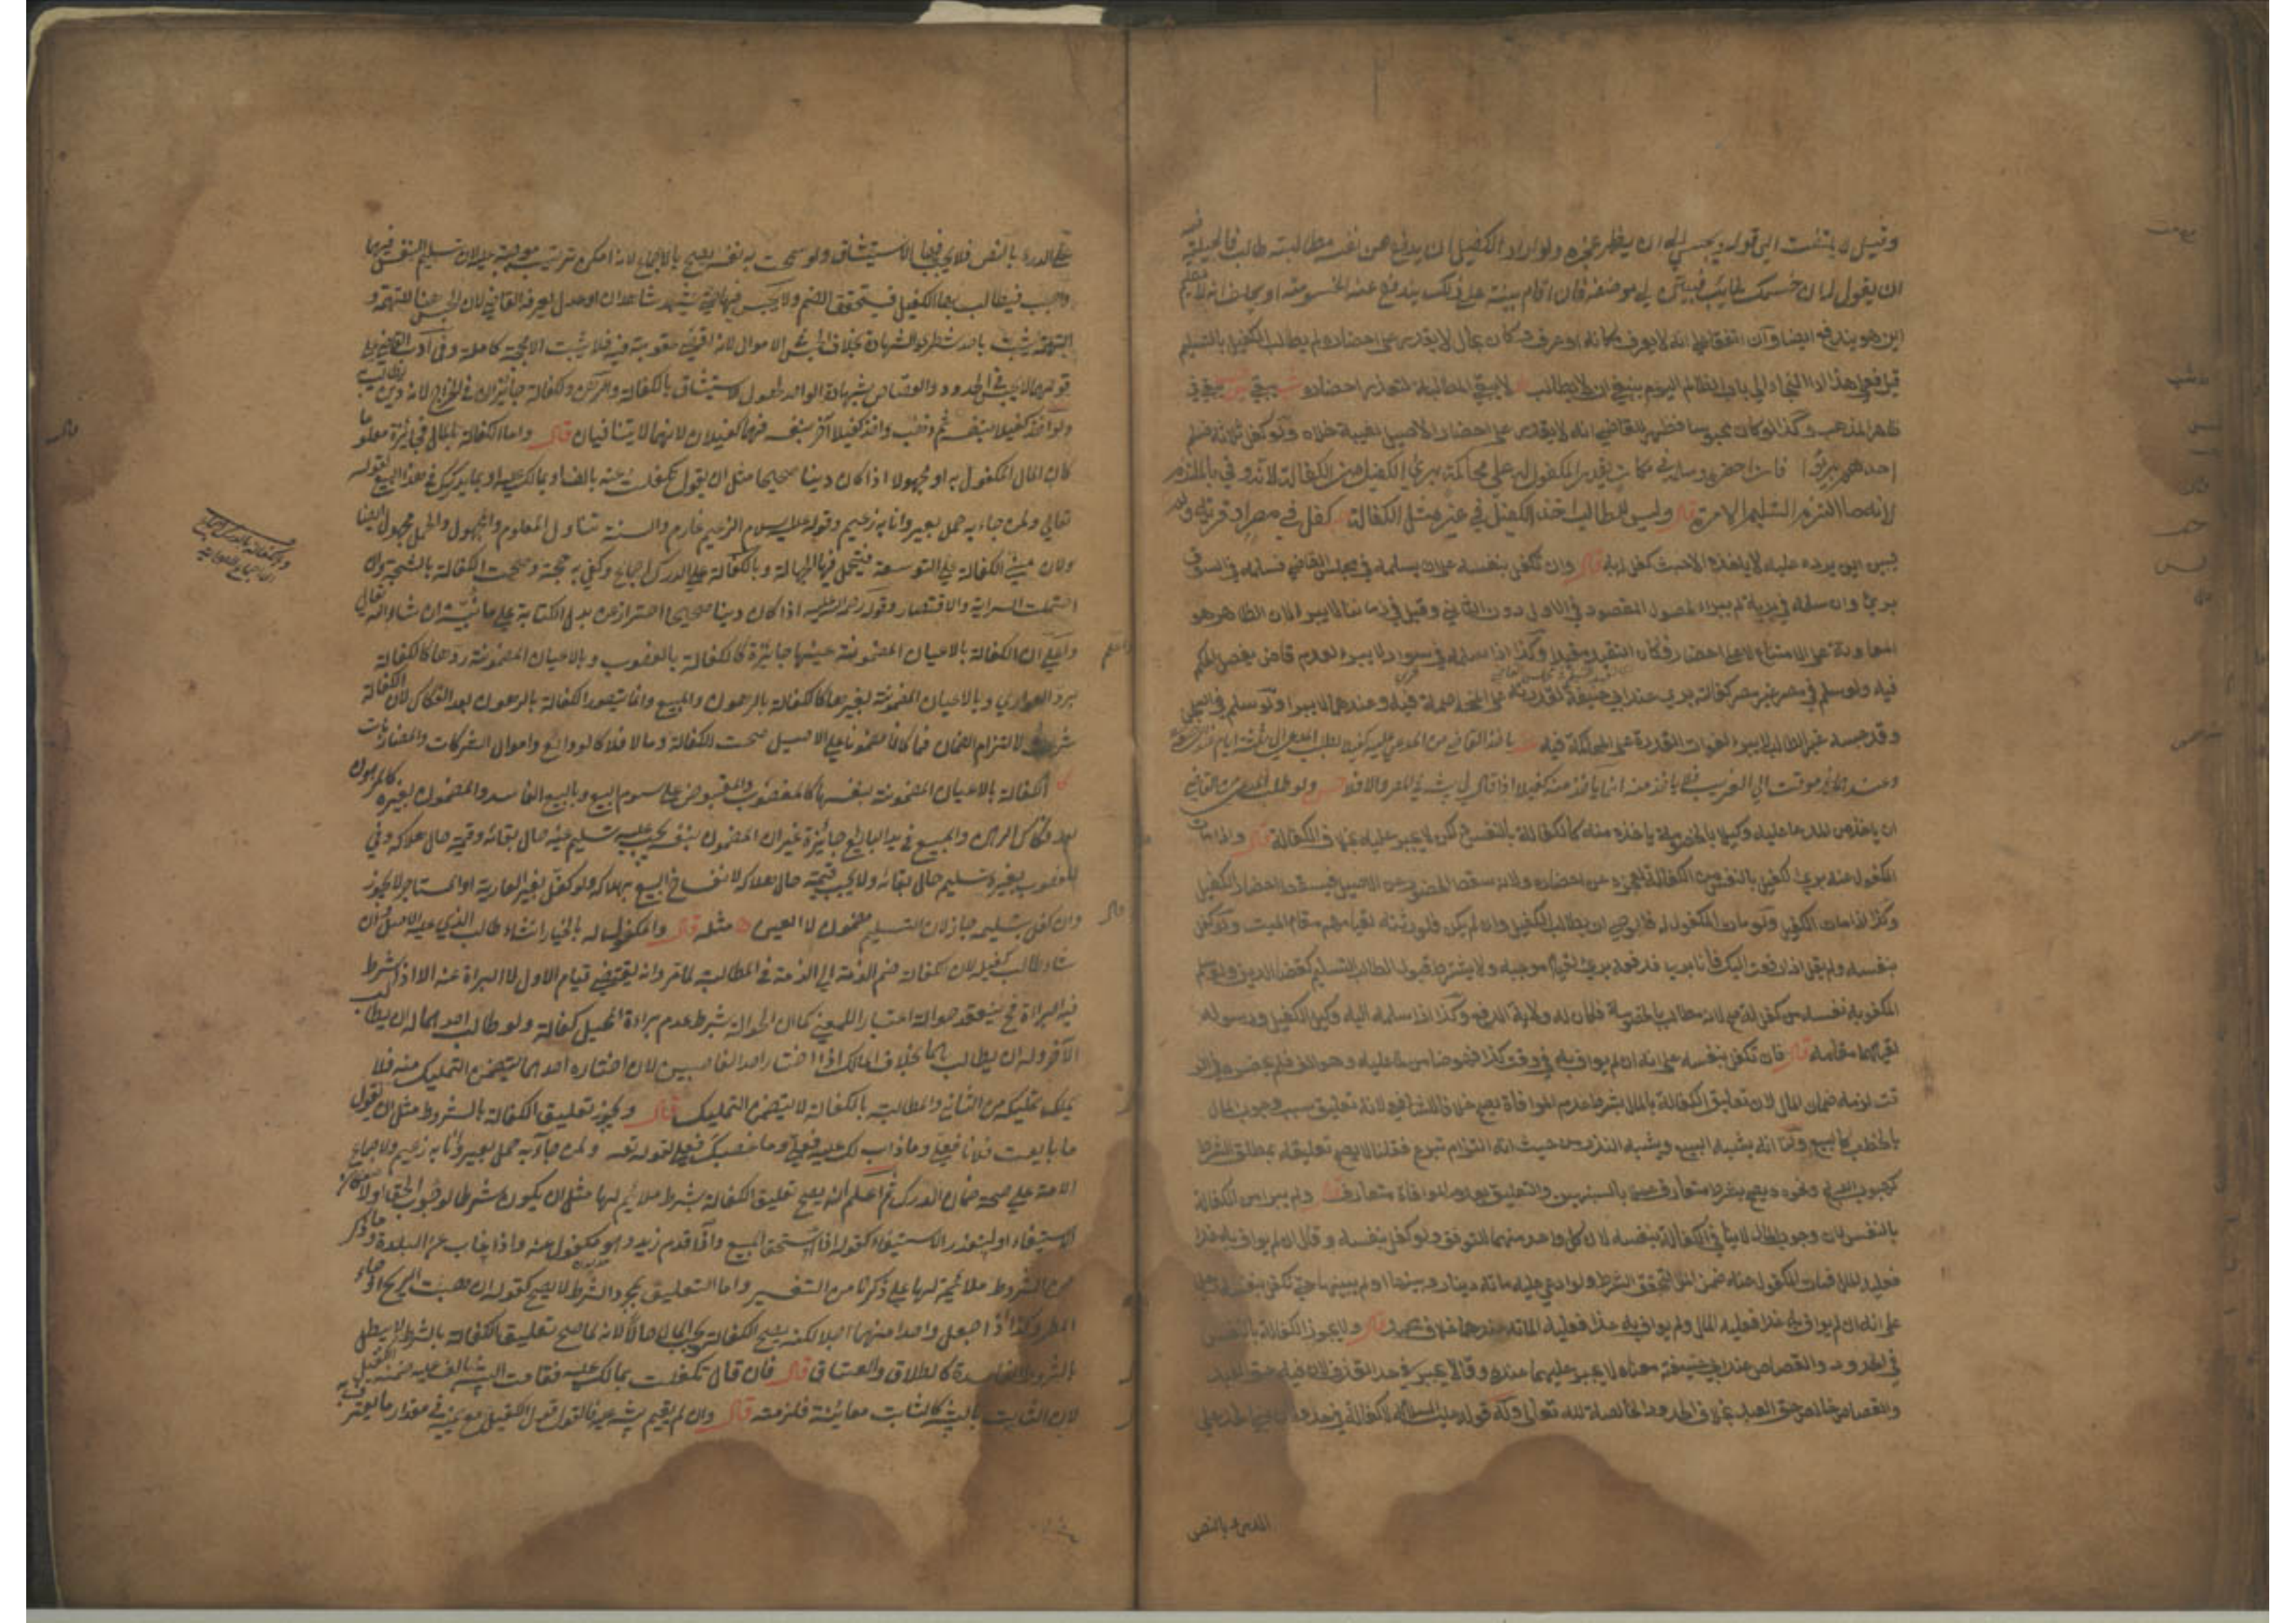 وقيل لا يلتفت الى قوله ويحبسه الى ان يظهر عجزه ولو اراد الكفيل ان يدفع عن نفسه مطالبته طالب فالحيلة فيه
ان يقول له ان خصمك غايب فبين لي موضعه فان اقام بينة على ذلك يندفع عنه الخصومة او يحلف انه لا يعلم
اين هو يندفع ايضا وان اتفقا على انه لا يعرف مكانه او عرف مكان بحال لا يقدر على احضاره لم يطالب الكفيل بالتسليم
قيل فعلى هذا اذا التجأ الى باب الظالم اليوم ينبغي ان لا يطالب لا يبقى المطالبة لتعذر احضاره
ظاهر المذهب وكذا لو كان محبوسا فظهر للقاضي انه لا يقدر على احضار الاصيل لغيبة خلاه ولو كفل ثلاثة فسلم
احدهم برئوا فان احضره وسلمه في مكان يقدر المكفول له على محاكمته برئ الكفيل من الكفالة لانه وفى بالملتزم
لانه ما التزم التسليم الا مرة قال وليس للطالب اخذ الكفيل في غير مثل الكفالة كفل في مصر او قرية
ليس اين يرده عليه لا ياخذه الا حيث كفل به قال وان تكفل بنفسه على ان يسلمه في مجلس القاضي فسلمه في السوق
برئ وان سلمه في برية لم يبرأ لحصول المقصود في الاول دون الثاني وقيل في زماننا لا يبرأ لان الظاهر هو
المعاونة على الامتناع لا على احضار فكان التقييد مفيدا وكذا اذا سلمه في سواد لا يبرء لعدم قاض يفصل الحكم
فيه ولو سلم في مصر غير مصر كفالته برئ عند ابي حنيفة لقدرته على المخاصمة فيه وعندهما لا يبرأ ولو سلم في السجن
وقد حبسه غير الطالب لا يبرء لفوات القدرة على المحاكمة فيه ياخذ القاضي من المدعى عليه كفيلا بطلب المدعي الى ثلثة ايام
وعند موقت الى الغريب فلا ياخذ منه انما ياخذ منه كفيلا اذا قال لي شهود في المصر والا فلا ولو طلب المدعي من القاضي
ان ياخذ من المدعا عليه وكيلا بالخصومة ياخذه منه كالكفالة بالنفس لكن لا يجبر عليه بخلاف الكفالة قال واذا مات
المكفول عنه برئ كفيل بالنفس من الكفالة لعجزه عن احضاره ولانه سقط الحضور عن الاصيل فيسقط احضار الكفيل
وكذا اذا مات الكفيل ولو مات المكفول له فالوصي ان يطالب الكفيل وان لم يكن فلورثته لقيامهم مقام الميت ولو كفل
بنفسه ولم يقل اذا دفعت اليك فانا بريء فدفعه برئ لانه موجبه ولا يشترط قبول الطالب التسليم كقضاء الدين ولو سلم
المكفول به نفسه من كفالته صح لانه مطالب بالخصومة فكان له ولاية الدفع وكذا اذا سلمه اليه وكيل الكفيل ورسوله
لقيامهما مقامه قال فان تكفل بنفسه على انه ان لم يواف به في وقت كذا فهو ضامن لما عليه وهو الف فلم يحضره في الوقت
لزمه ضمان المال لان تعليق الكفالة بالمال بشرط عدم الموافاة يصح خلافا للشافعي لانه تعليق سبب وجوب المال
بالخطر كالبيع ولنا انه يشبه البيع ويشبه النذر من حيث انه التزام تبرع فقلنا لا يصح تعليقه بمطلق الشرط
كهبوب الريح ونحوه ويصح بشرط متعارف عملا بالشبهين والتعليق بعدم الموافاة متعارف قال ولم يبرا من الكفالة
بالنفس لان وجوب المال لا ينافي الكفالة بنفسه لان كل واحد منهما للتوثق ولو كفل بنفسه وقال ان لم يواف به غدا
فعليه المال فمات المكفول عنه ضمن المال لتحقق الشرط ولو ادعى عليه مائة دينار وبينها او لم يبينها حتى تكفل بنفسه رجل
على انه ان لم يواف به غدا فعليه المال ولم يواف به غدا فعليه المائة عندهما خلافا لمحمد قال ولا يجوز الكفالة بالنفس
في الحدود والقصاص عند ابي حنيفة معناه لا يجبر عليهما عنده وقالا يجبر في حد القذف لان فيه حق العبد
والقصاص خالص حق العبد بخلاف الحدود الخالصة لله تعالى وله قوله عليه السلام لا كفالة في حد
الدرء بالنص
على الدرء بالنص فلا يجب فيها الاستيثاق ولو سمحت به نفسه يصح بالاجماع لانه امكن ترتيب موجبه عليه لان تسليم النفس فيهما
واجب فيطالب به الكفيل فيتحقق الضم ولا يحبس فيها حتى يشهد شاهدان او عدل يعرفه القاضي لان الحبس هنا للتهمة و
التهمة يثبت باحد شطري الشهادة بخلاف الحبس الاموال لانه اقصى عقوبة فيه فلا يثبت الا بحجة كاملة وفي ادب القاضي
قولهما لا يحبس في الحدود والقصاص بشهادة الواحد لحصول الاستيثاق بالكفالة والرهن والكفالة جائزان في الخراج لانه دين
ولو اخذ كفيلا بنفسه ثم ذهب واخذ كفيلا آخر بنفسه فهما كفيلان لانهما لا يتنافيان قال واما الكفالة بالمال فجائزة معلوما
كان المال المكفول به او مجهولا اذا كان دينا صحيحا مثل ان يقول تكفلت عنه بالف او بمالك عليه او بما يدركك في هذا البيع لقوله
تعالى ولمن جاء به حمل بعير وانا به زعيم وقوله عليه السلام الزعيم غارم والسنة تتناول المعلوم والمجهول والحمل مجهول ايضا
ولان مبنى الكفالة على التوسعة فيتحمل فيها الجهالة وبالكفالة على الدرك اجماع وكفى به حجة وصحت الكفالة بالشجة وان
احتملت السراية والاقتصار وقوله رحمه الله اذا كان دينا صحيحا احترازا عن بدل الكتابة على ما نبينه ان شاء الله تعالى
واعلم ان الكفالة بالاعيان المضمونة عينها جائزة كالكفالة بالغصوب وبالاعيان المضمونة ردها كالكفالة
برد العواري وبالاعيان المضمونة لغيرها كالكفالة بالرهون والمبيع وانما يتصور الكفالة بالرهون بعد الفكاك لان الكفالة
لالتزام الضمان فما كان مضمونا على الاصيل صحت الكفالة وما لا فلا كالودائع واموال الشركات والمضاربات
الكفالة بالاعيان المضمونة بنفسها كالمغصوب والمقبوض على سوم البيع وبالبيع الفاسد والمضمون بغيره كالمرهون
بعد فكاك الرهن والمبيع في يد البايع جائزة غير ان المضمون بنفسه يجب عليه تسليم عينه حال بقائه وقيمته حال هلاكه وفي
المضمون بغيره تسليم حال بقائه ولا يجب قيمته حال هلاكه لانفساخ البيع بهلاكه ولو كفل بغير العارية او المستاجر لا يجوز
وان كفل بتسليمه جاز لان التسليم مضمون لا العين مثله قال والمكفول له بالخيار ان شاء طالب الذي عليه الاصل وان
شاء طالب كفيله لان الكفالة ضم الذمة الى الذمة في المطالبة لما مر وانه يقتضي قيام الاول لا البراءة عنه الا اذا شرط
فيه البراءة فح ينعقد حوالة اعتبارا للمعنى كما ان الحوالة بشرط عدم براءة المحيل كفالة ولو طالب احدهما له ان يطالب
الآخر وله ان يطالب بهما بخلاف المالك اذا اختار احد الغاصبين لان اختياره احدهما يتضمن التمليك منه فلا
يملك تمليكه من الثاني والمطالبة بالكفالة لا يتضمن التمليك قال ويجوز تعليق الكفالة بالشروط مثل ان يقول
ما بايعت فلانا فعلي وما ذاب لك عليه فعلي وما غصبك فعلي لقوله تعالى ولمن جاء به حمل بعير وانا به زعيم ولاجماع
الامة على صحة ضمان الدرك ثم اعلم انه يصح تعليق الكفالة بشرط ملائم لها مثل ان يكون شرطا لوجوب الحق او لامكان
الاستيفاء او لتعذر الاستيفاء كقوله اذا استحق المبيع واذا قدم زيد وهو مكفول عنه واذا غاب عن البلدة وما ذكر
من الشروط ملائمة لها على ما ذكرنا من التفسير واما التعليق بمجرد الشرط لا يصح كقوله ان هبت الريح او جاء
المطر وكذا اذا جعل واحدا منهما اجلا لكنه يصح الكفالة ويجب المال حالا لانه لما صح تعليق الكفالة بالشرط لا يبطل
بالشروط الفاسدة كالطلاق والعتاق قال فان قال تكفلت بمالك عليه فقامت البينة بالف عليه ضمنه الكفيل
لان الثابت بالبينة كالثابت معاينة فلزمته قال وان لم يقم بينة فالقول قول الكفيل مع يمينه في مقدار ما يعترف به